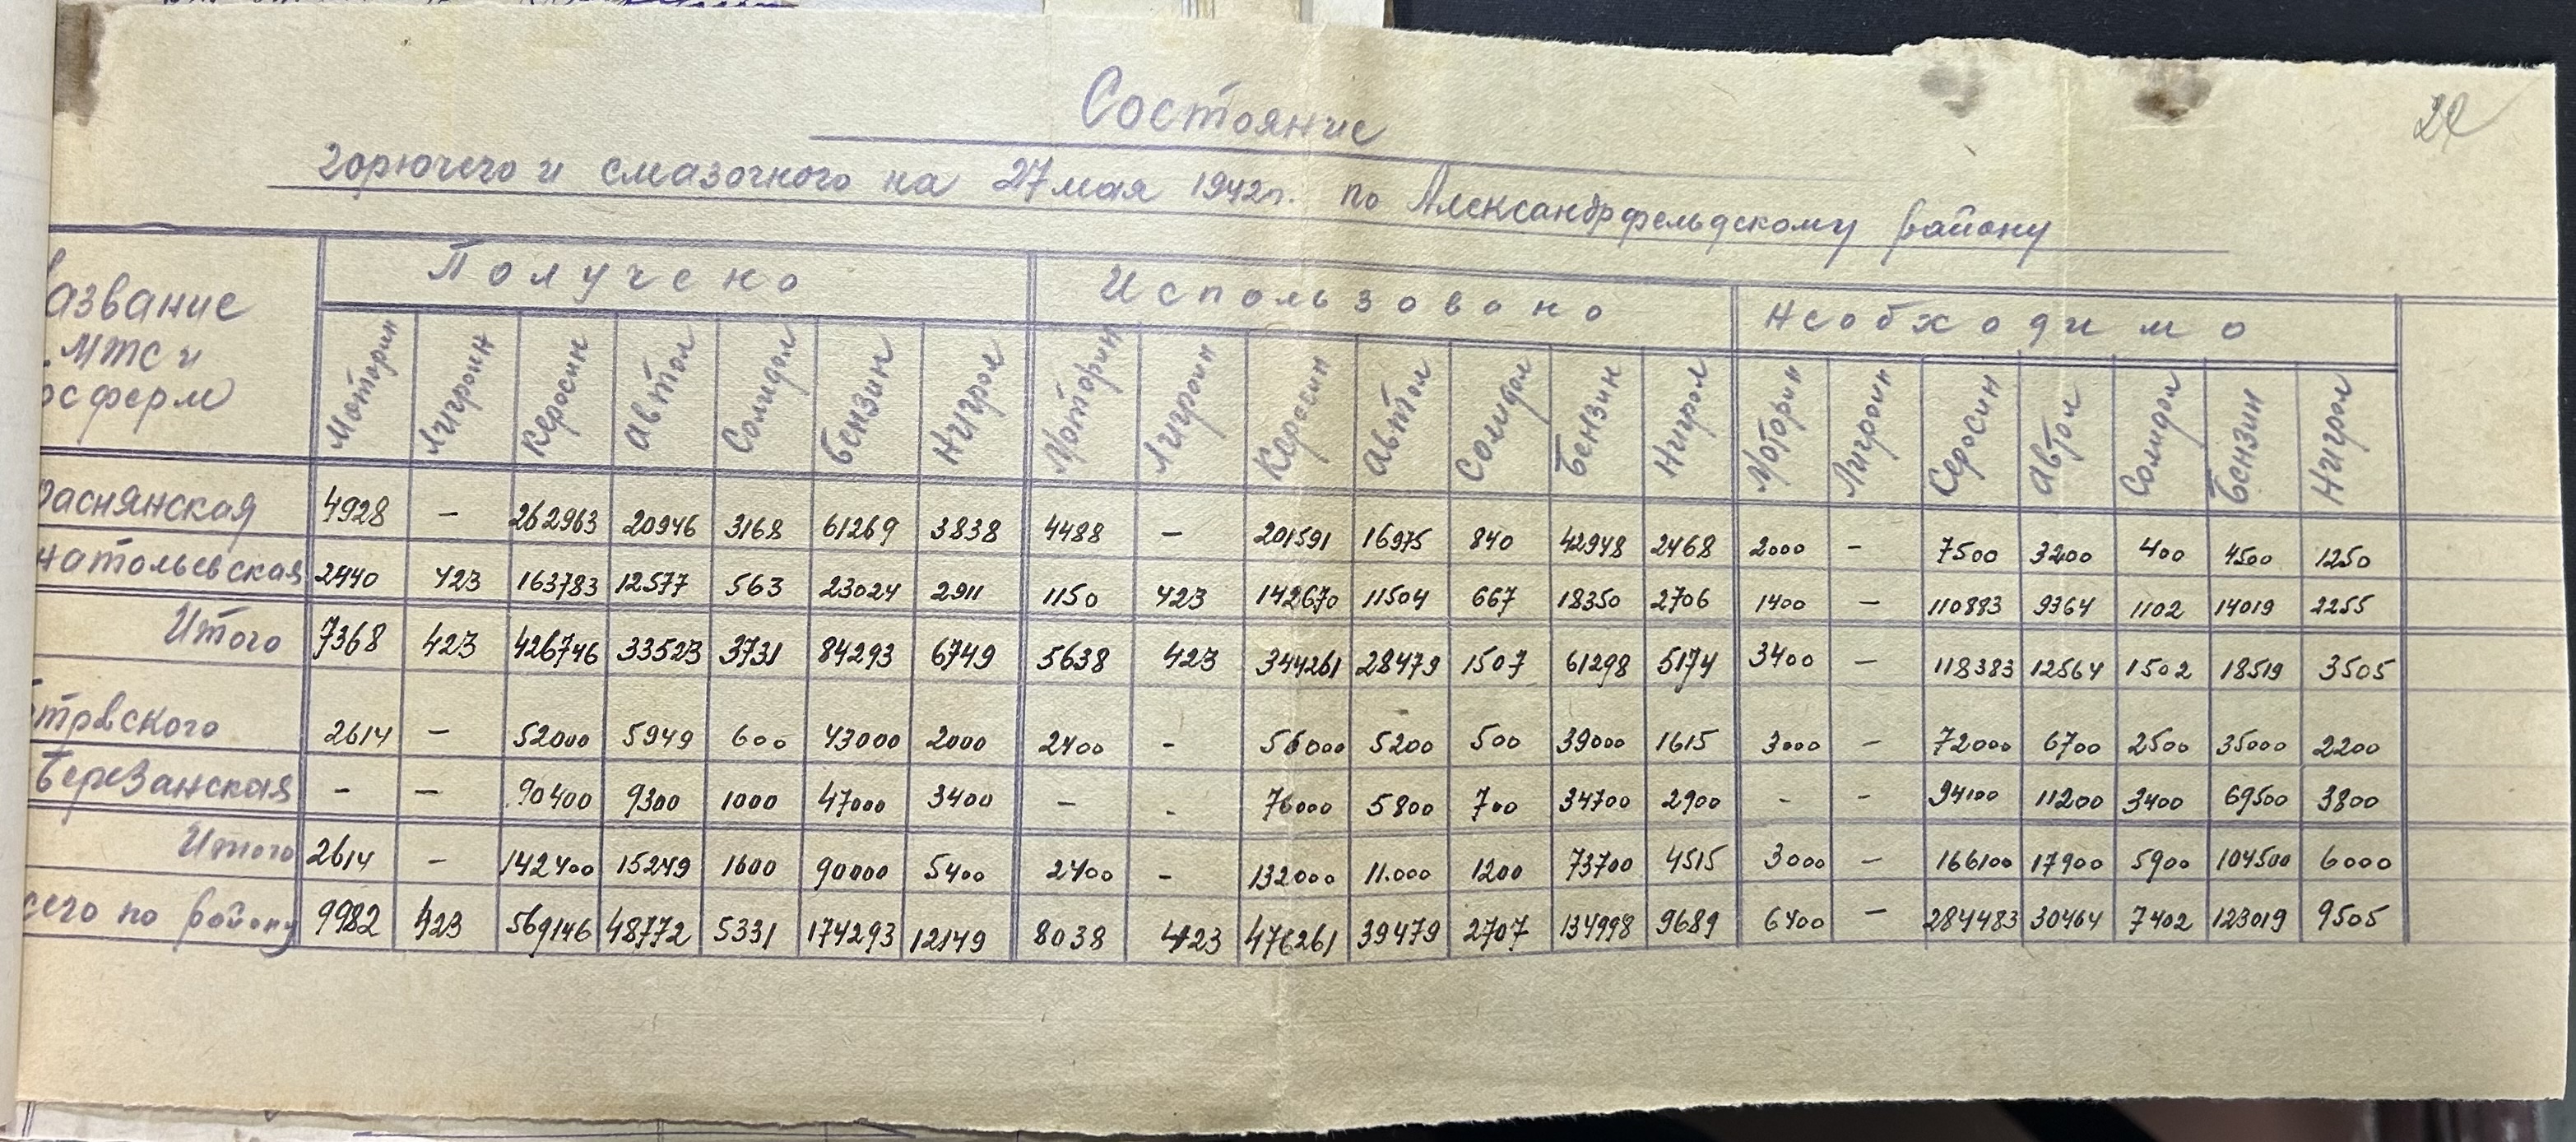 Состояние
горючего и смазочного на 27 мая 1942 г. по Александрфельдскому району
24
азвание
МТС и
осферм
Получено
Использовано
Необходимо
Моторин Лигроин Керосин Автол Солидол Бензин Нигрол Моторин Лигроин Керосин Автол Солидол Бензин Нигрол Моторин Лигроин Серосин Автол Солидол Бензин Нигрол
раснянская 4928 — 262963 20946 3168 61269 3838 4488 — 201591 16975 840 42948 2468 2000 — 7500 3200 400 4500 1250
натольевская 2440 423 163783 12577 563 23024 2911 1150 423 142670 11504 667 18350 2706 1400 — 110883 9364 1102 14019 2255
Итого 7368 423 426746 33523 3731 84293 6749 5638 423 344261 28479 1507 61298 5174 3400 — 118383 12564 1502 18519 3505
тровского 2614 — 52000 5949 600 43000 2000 2400 - 56000 5200 500 39000 1615 3000 — 72000 6700 2500 35000 2200
Березанская — — 90400 9300 1000 47000 3400 — - 76000 5800 700 34700 2900 - — 94100 11200 3400 69500 3800
Итого 2614 — 142400 15249 1600 90000 5400 2400 — 132000 11.000 1200 73700 4515 3000 — 166100 17900 5900 104500 6000
сего по району 9982 423 569146 48772 5331 174293 12149 8038 423 476261 39479 2707 134998 9689 6400 — 284483 30464 7402 123019 9505